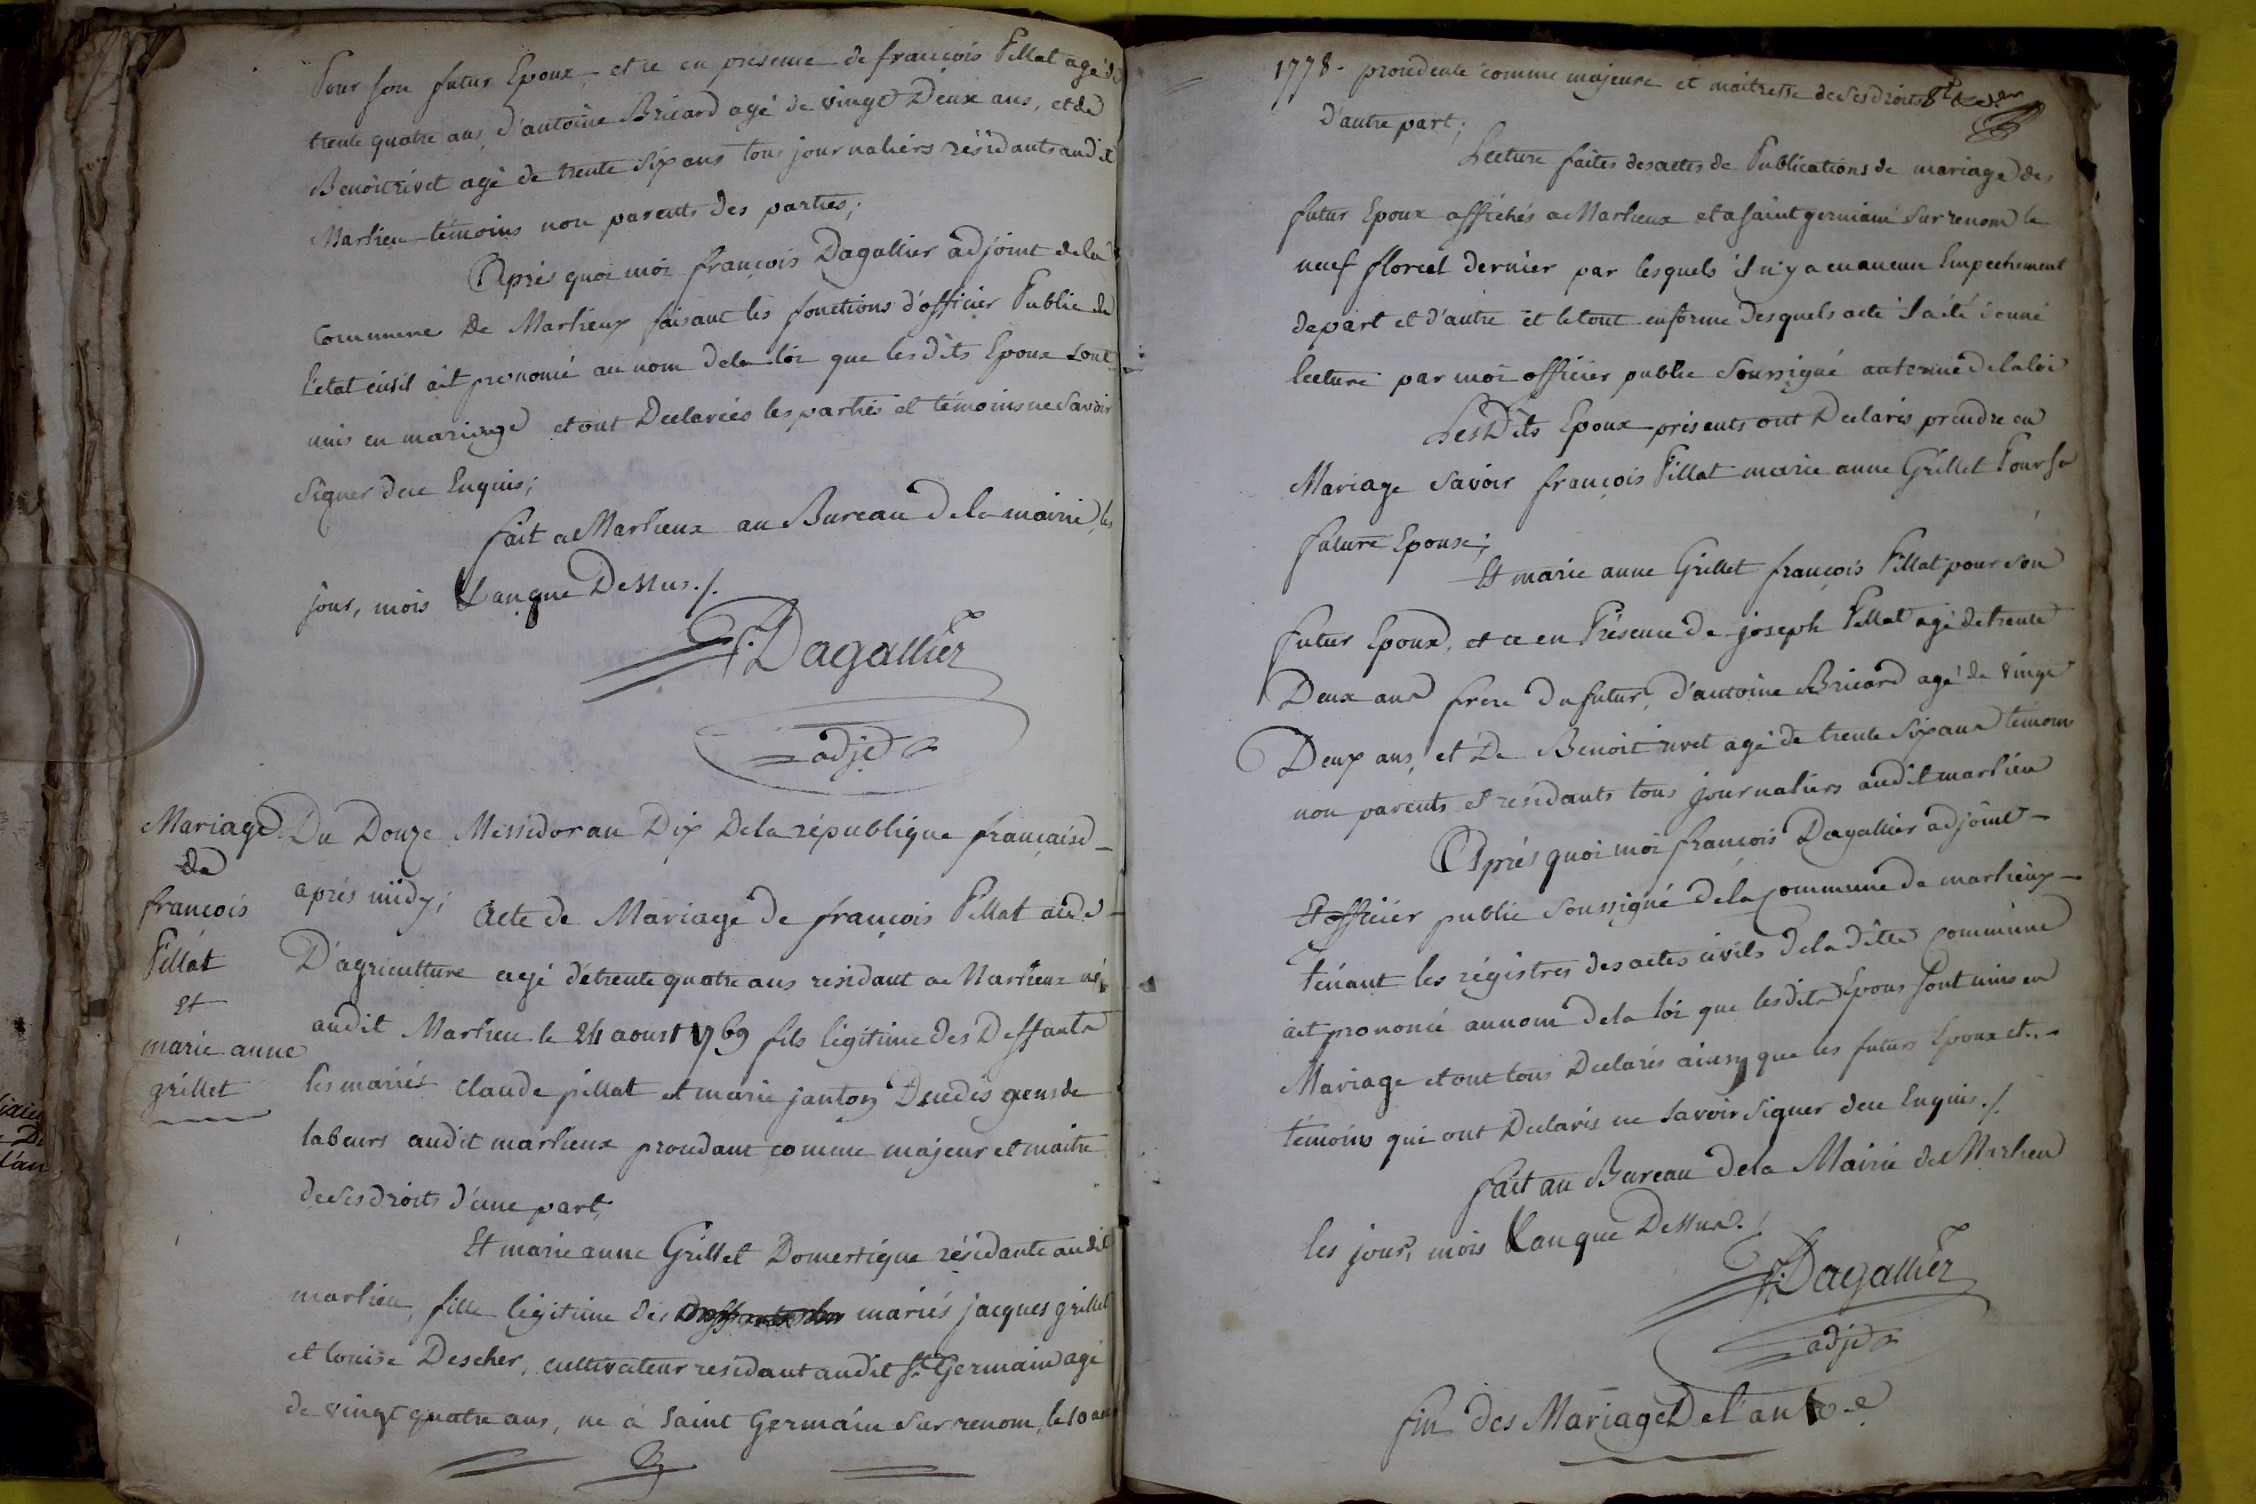 Pour son futur Epoux, et ce en présence de françois Pillat agé de
trente quatre ans, d'antoine Bricard agé de vingt Deux ans, et de
Benoit rivet agé de trente Six ans tous journaliers résidants audit
Marlieu témoins non parents des parties;
Après quoi moi françois Dagallier adjoint dela
Commune De Marlieux faisant les fonctions d'officier Public de
l'etat civil ait prononcé au nom dela loi que les dits Epoux sont
unis en mariage et ont Declarées les parties et témoins ne savoir
signer dece Enquis;
fait a Marlieux au Bureau dela mairie, les
jour, mois & an que Dessus ./.
f. Dagallier
adjt
Mariage
de
francois
Pillat
et
marie anne
grillet
Du Douze Messidor an Dix Dela république française
après midy;
Acte de Mariage de françois Pillat aide
D'agriculture agé de trente quatre ans residant a Marlieux né
audit Marlieu le 24 aoust 1769 fils légitime des Deffants
les mariés Claude pillat et marie janton Decedés gens de
labeurs audit marlieux procedant comme majeur et maitre
de ses droits d'une part,
Et marie anne Grillet Domestique résidante audit
marlieu, fille légitime des mariés jacques grillet
et louise Descher, cultivateur residant audit St. Germain agé
de vingt quatre ans, né à Saint Germain sur renom, le 10
1778. procedente comme majeure et maitresse de ses droits
D'autre part;
Lecture faites des actes de Publications de mariage des
futur Epoux affichés a Marlieux et a saint germain sur renom le
neuf floreal dernier par lesquels il n'y a eu aucun Empechement
de part et d'autre et le tout en forme desquels acte il a été donné
lecture par moi officier public Soussigné au terme dela loi
Les Dits Epoux présents ont Declarés prendre en
Mariage Savoir françois Pillat marie anne Grillet Pour sa
future Epouse;
Et marie anne Grillet françois Pillat pour son
futur Epoux, et ce en Présence de joseph Pillat agé de trente
Deux ans frere du futur, d'antoine Bricard agé de vingt
Deux ans, et De Benoit rivet agé de trente Six ans témoins
non parents et residants tous journaliers audit marlieu
Après quoi moi francois Dagallier adjoint
Et officier public soussigné dela Commune de marlieux
tenant les régistres des actes civils dela ditte Commune
ait prononcé au nom dela loi que lesdits Epoux sont unis en
Mariage et ont tous Declarés ainsy que les futurs Epoux et
témoins qui ont Declarés ne savoir signer dece Enquis ./.
fait au Bureau dela Mairie de Marlieu
les jour, mois & an que Dessus.
f. Dagallier
adjt
fin des Mariages De l'an 10e